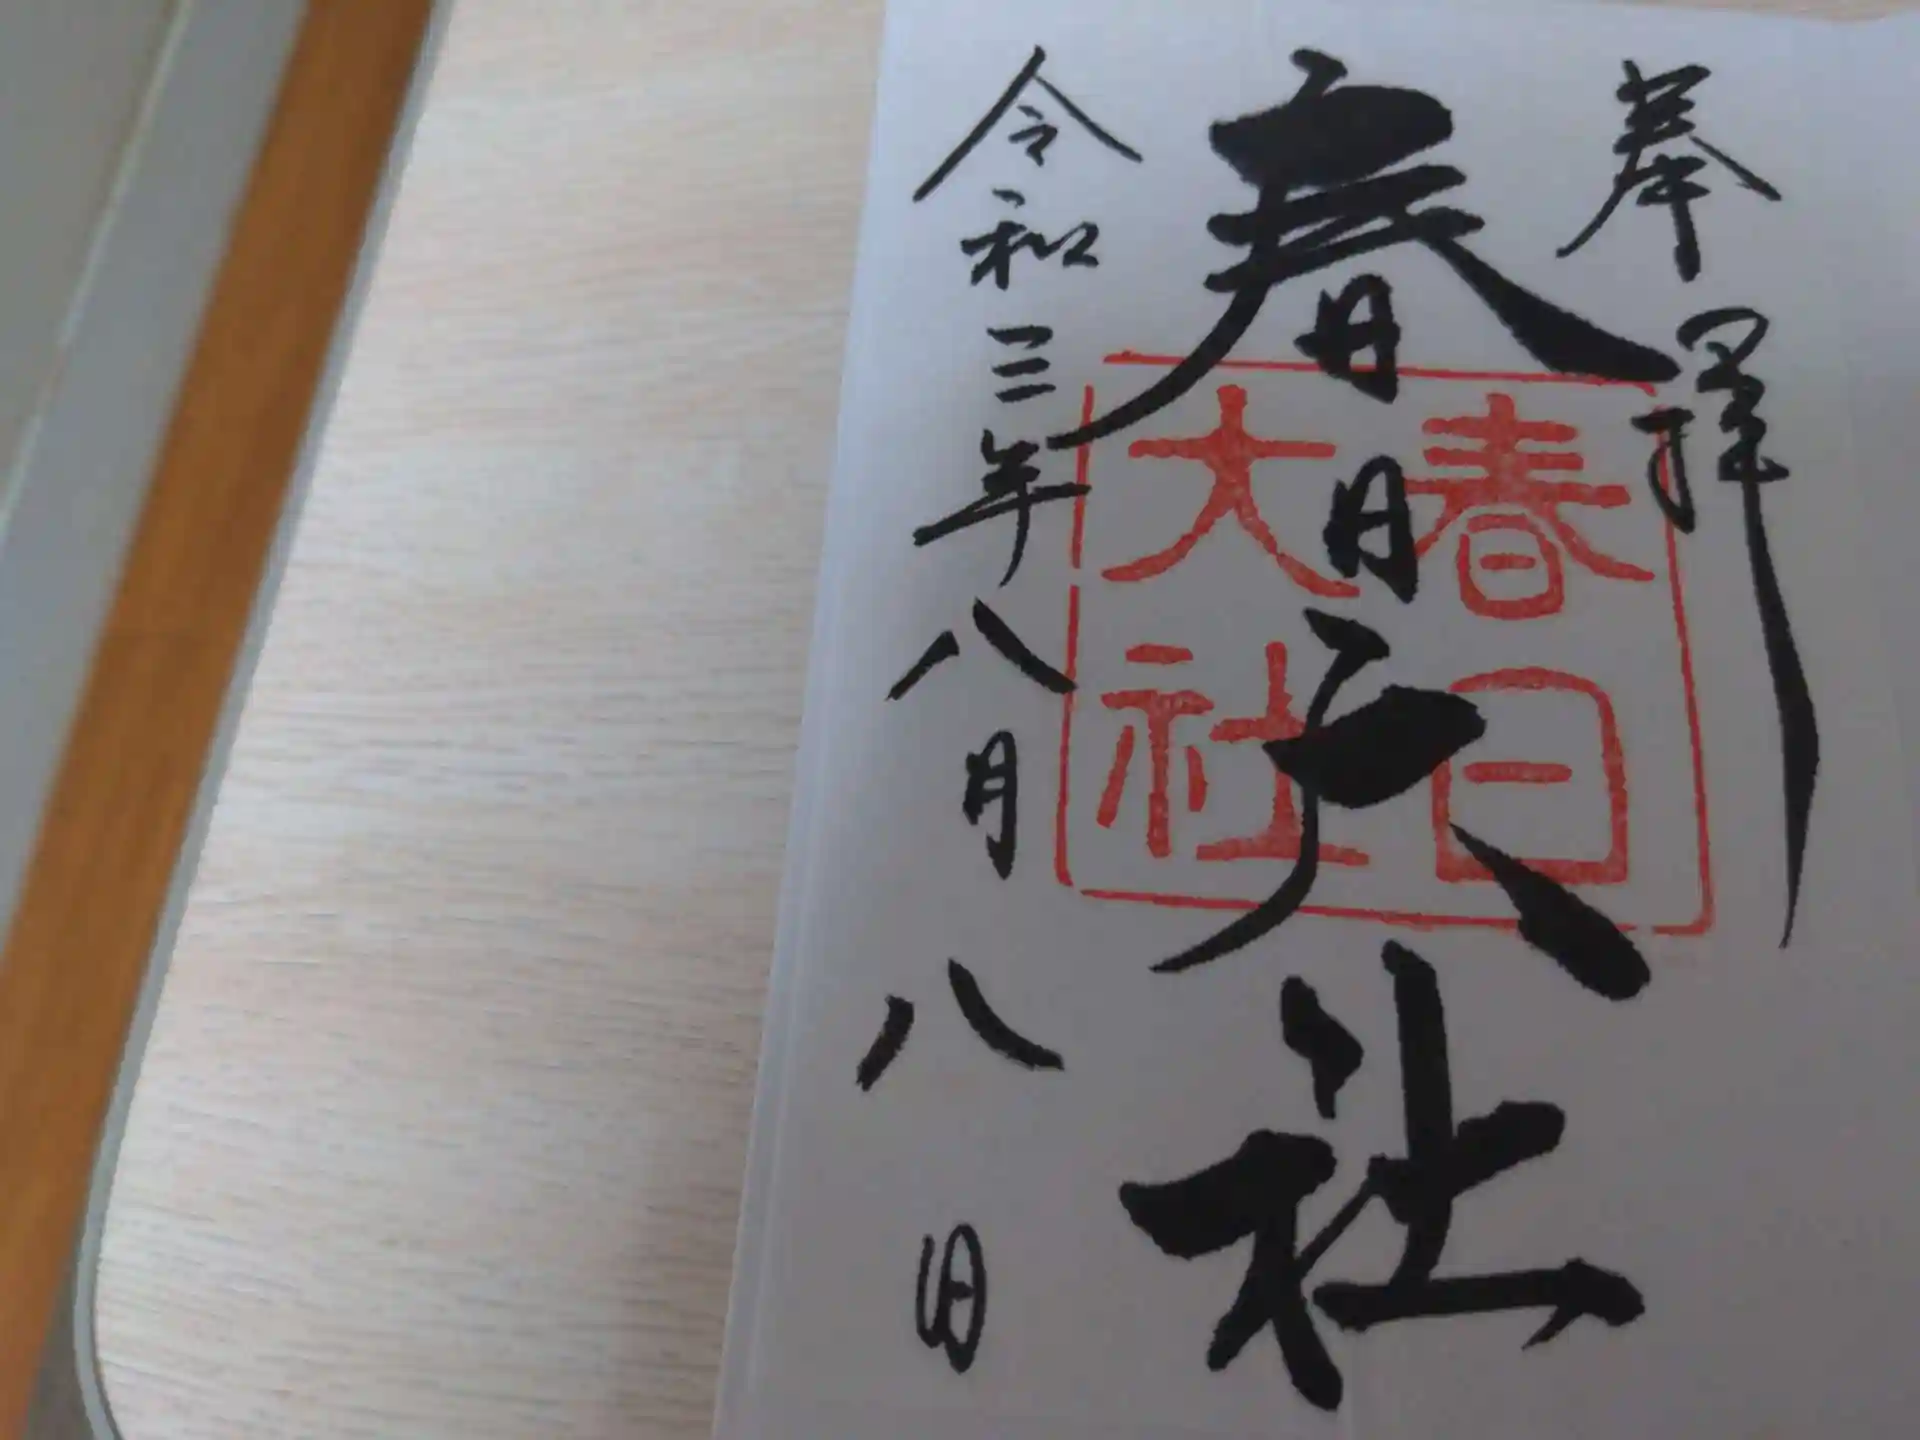 奉拝
春日大社
春日
大社
令和三年八月八日